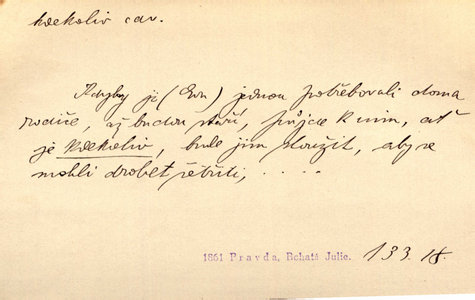 kdekoliv adv.
Kdyby je (Evu) jednou potřebovali doma
rodiče, až budou staří, půjde k nim, ať
je kdekoliv, bude jim sloužit, aby se
mohli drobet šetřiti, . . . . .
1861 Pravda, Bohatá Julie. 133. II.